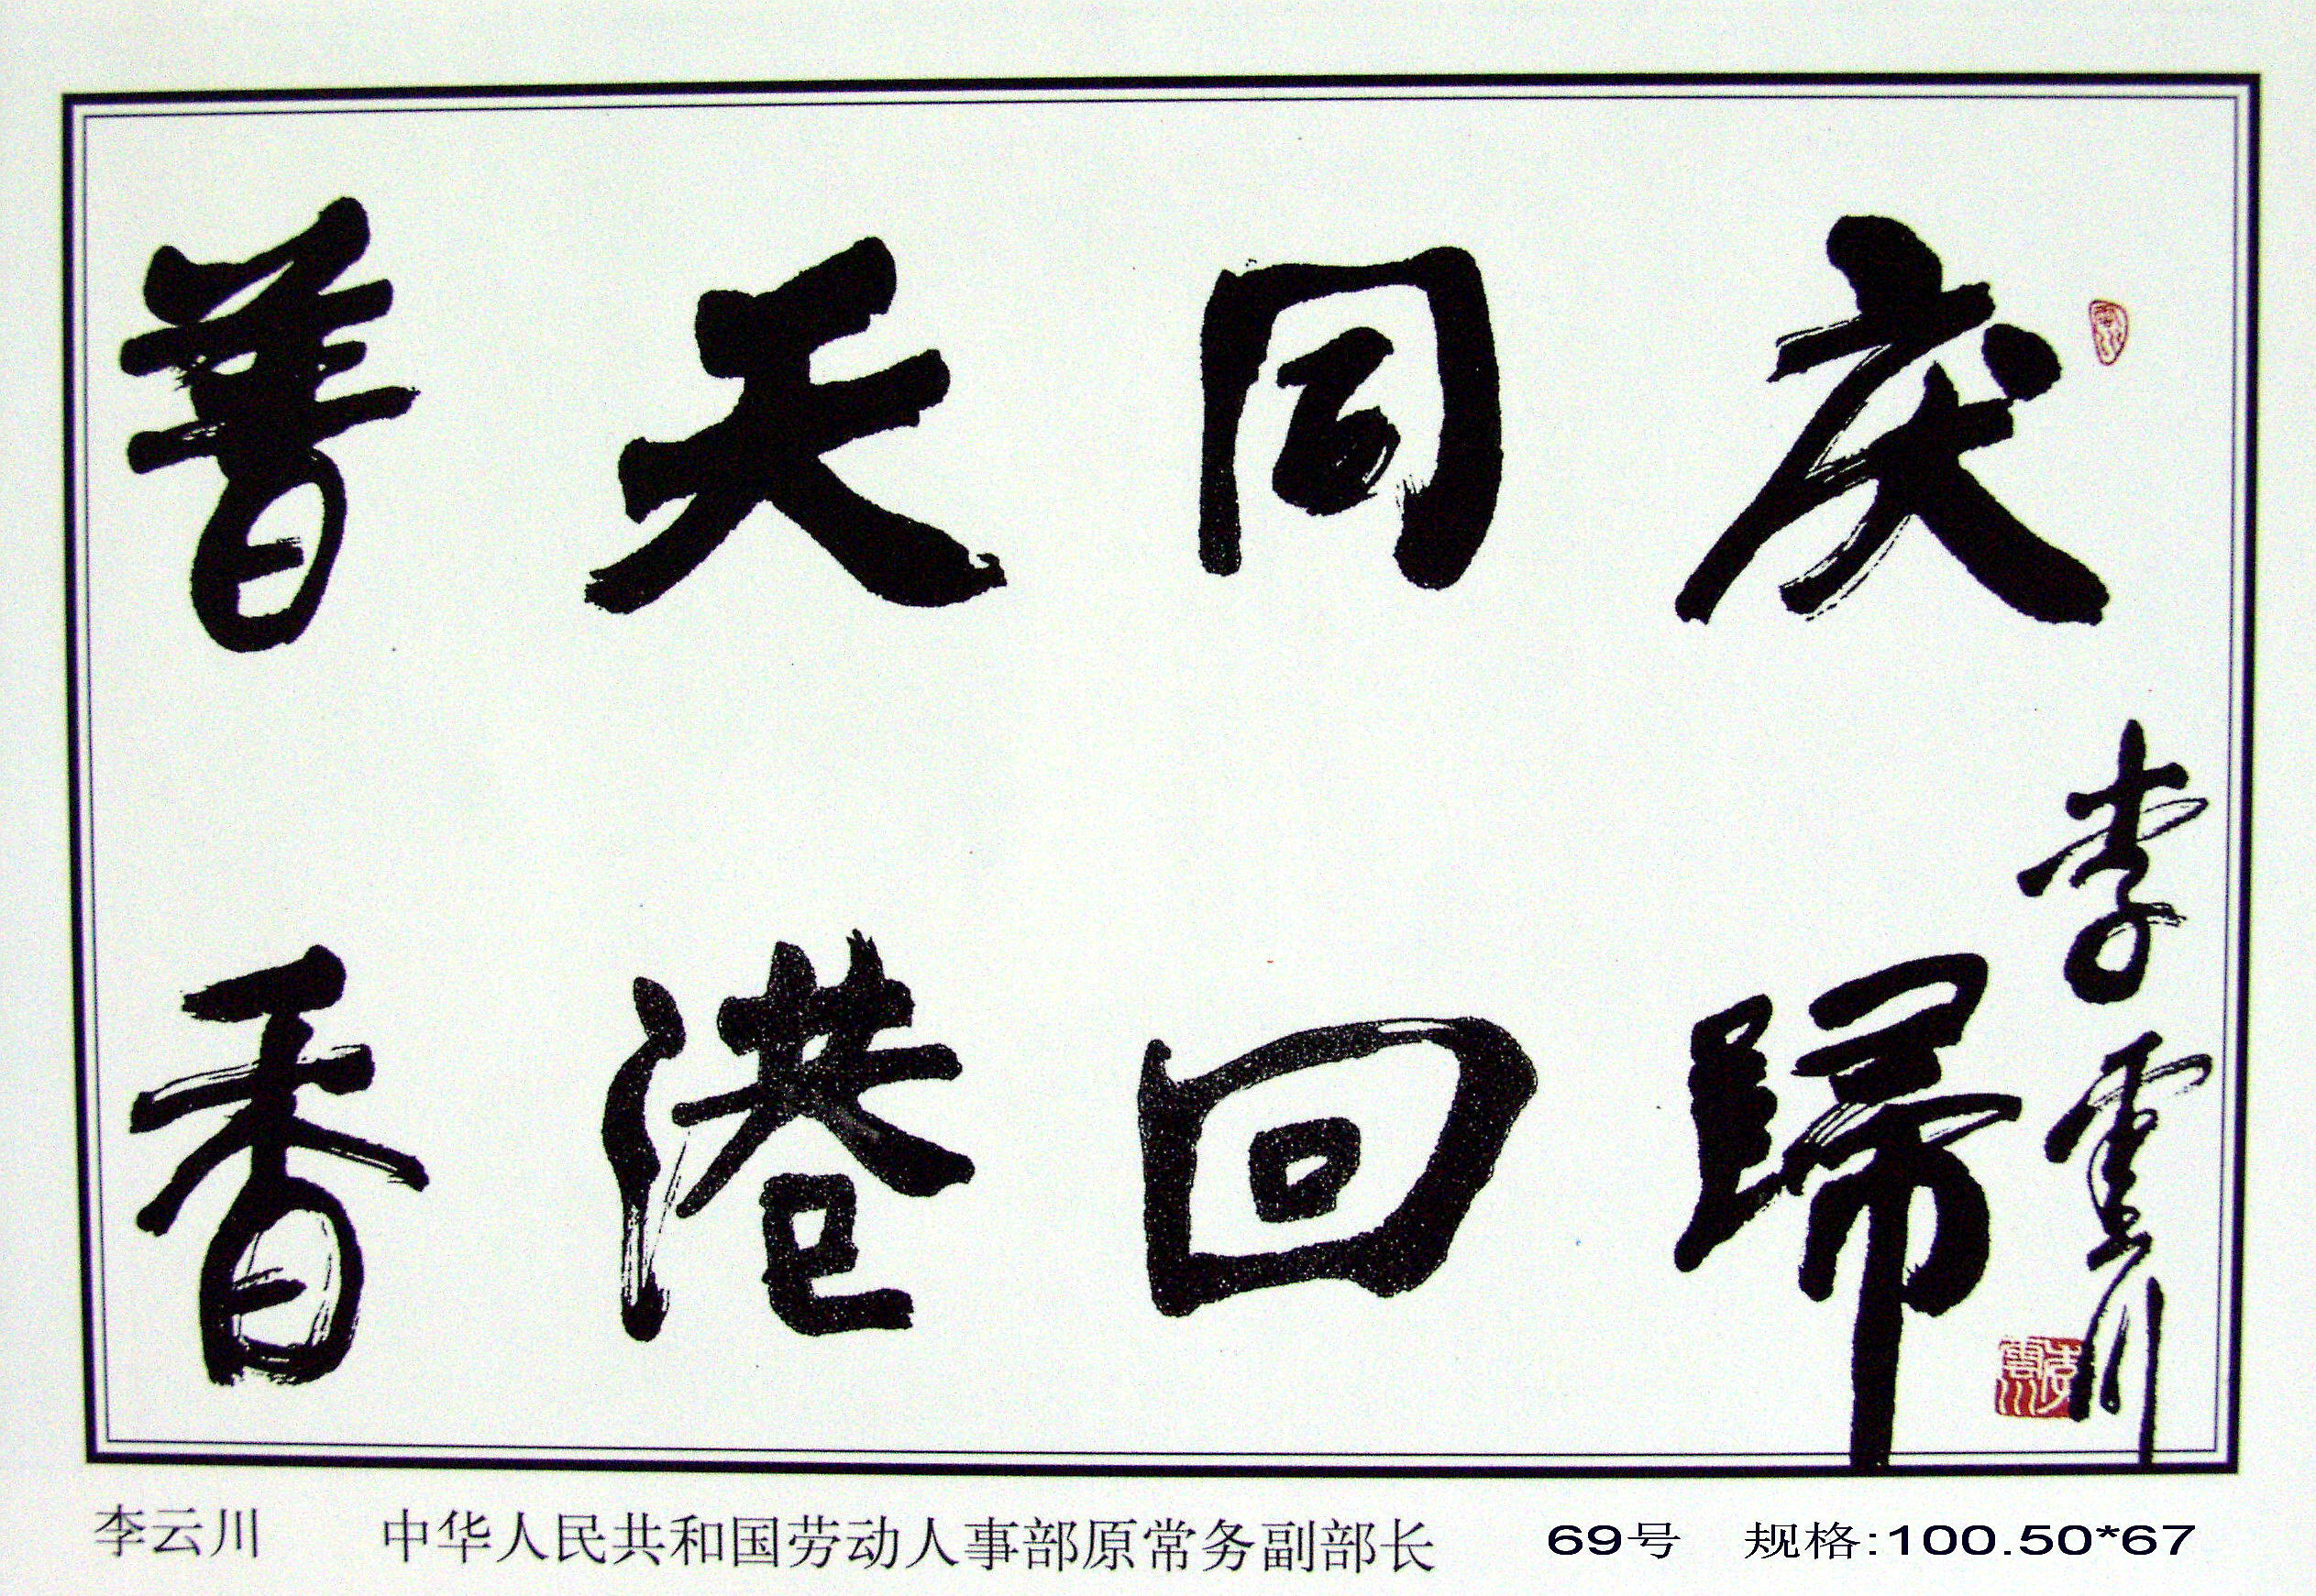 普天同庆
香港回歸
李雲川
李云川 中华人民共和国劳动人事部原常务副部长 69号 规格:100.50*67